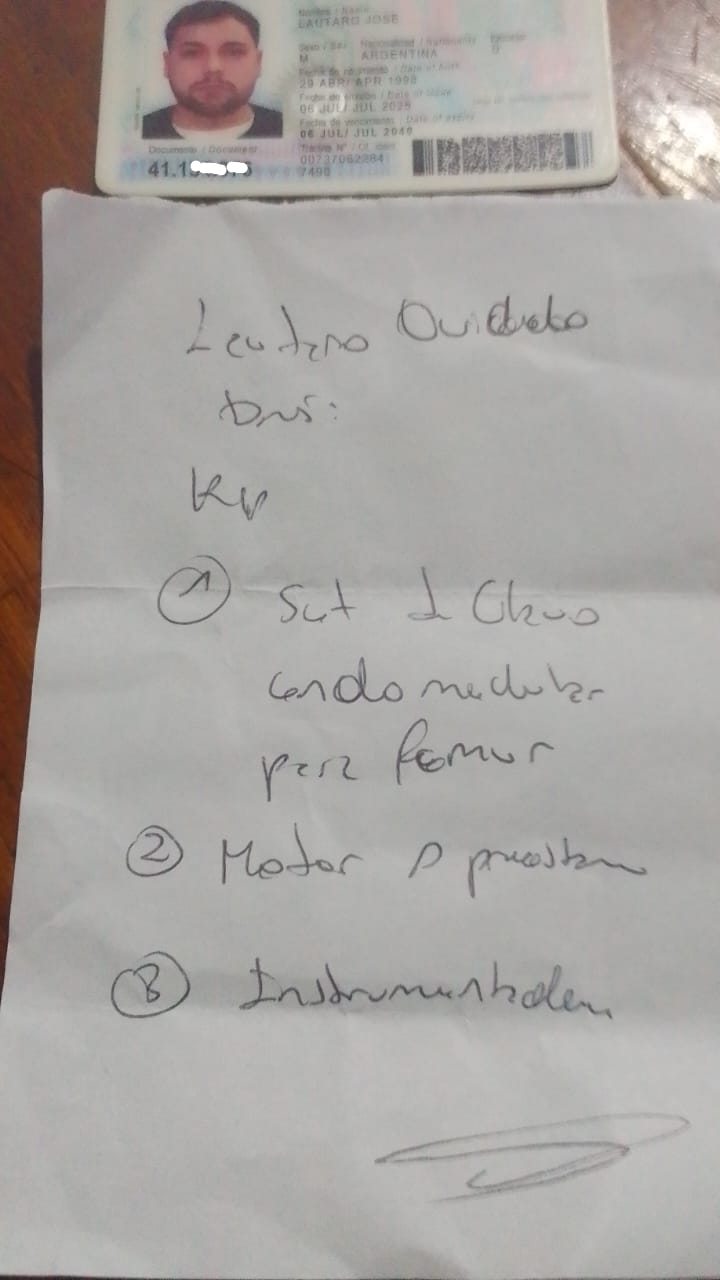 Nombre / Name
LAUTARO JOSÉ
Sexo / Sex Nacionalidad / Nationality Ejemplar
M ARGENTINA B
Fecha de nacimiento / Date of birth
29 ABR/ APR 1998
Fecha de emisión / Date of issue
06 JUL/ JUL 2025
Fecha de vencimiento / Date of expiry
06 JUL/ JUL 2040
Documento / Document
41.1
Trámite N° / Of. ident.
7490
Lautaro
Dni:
Rp
1 Set d Clavo
endomedular
para femur
2 Motor P
3